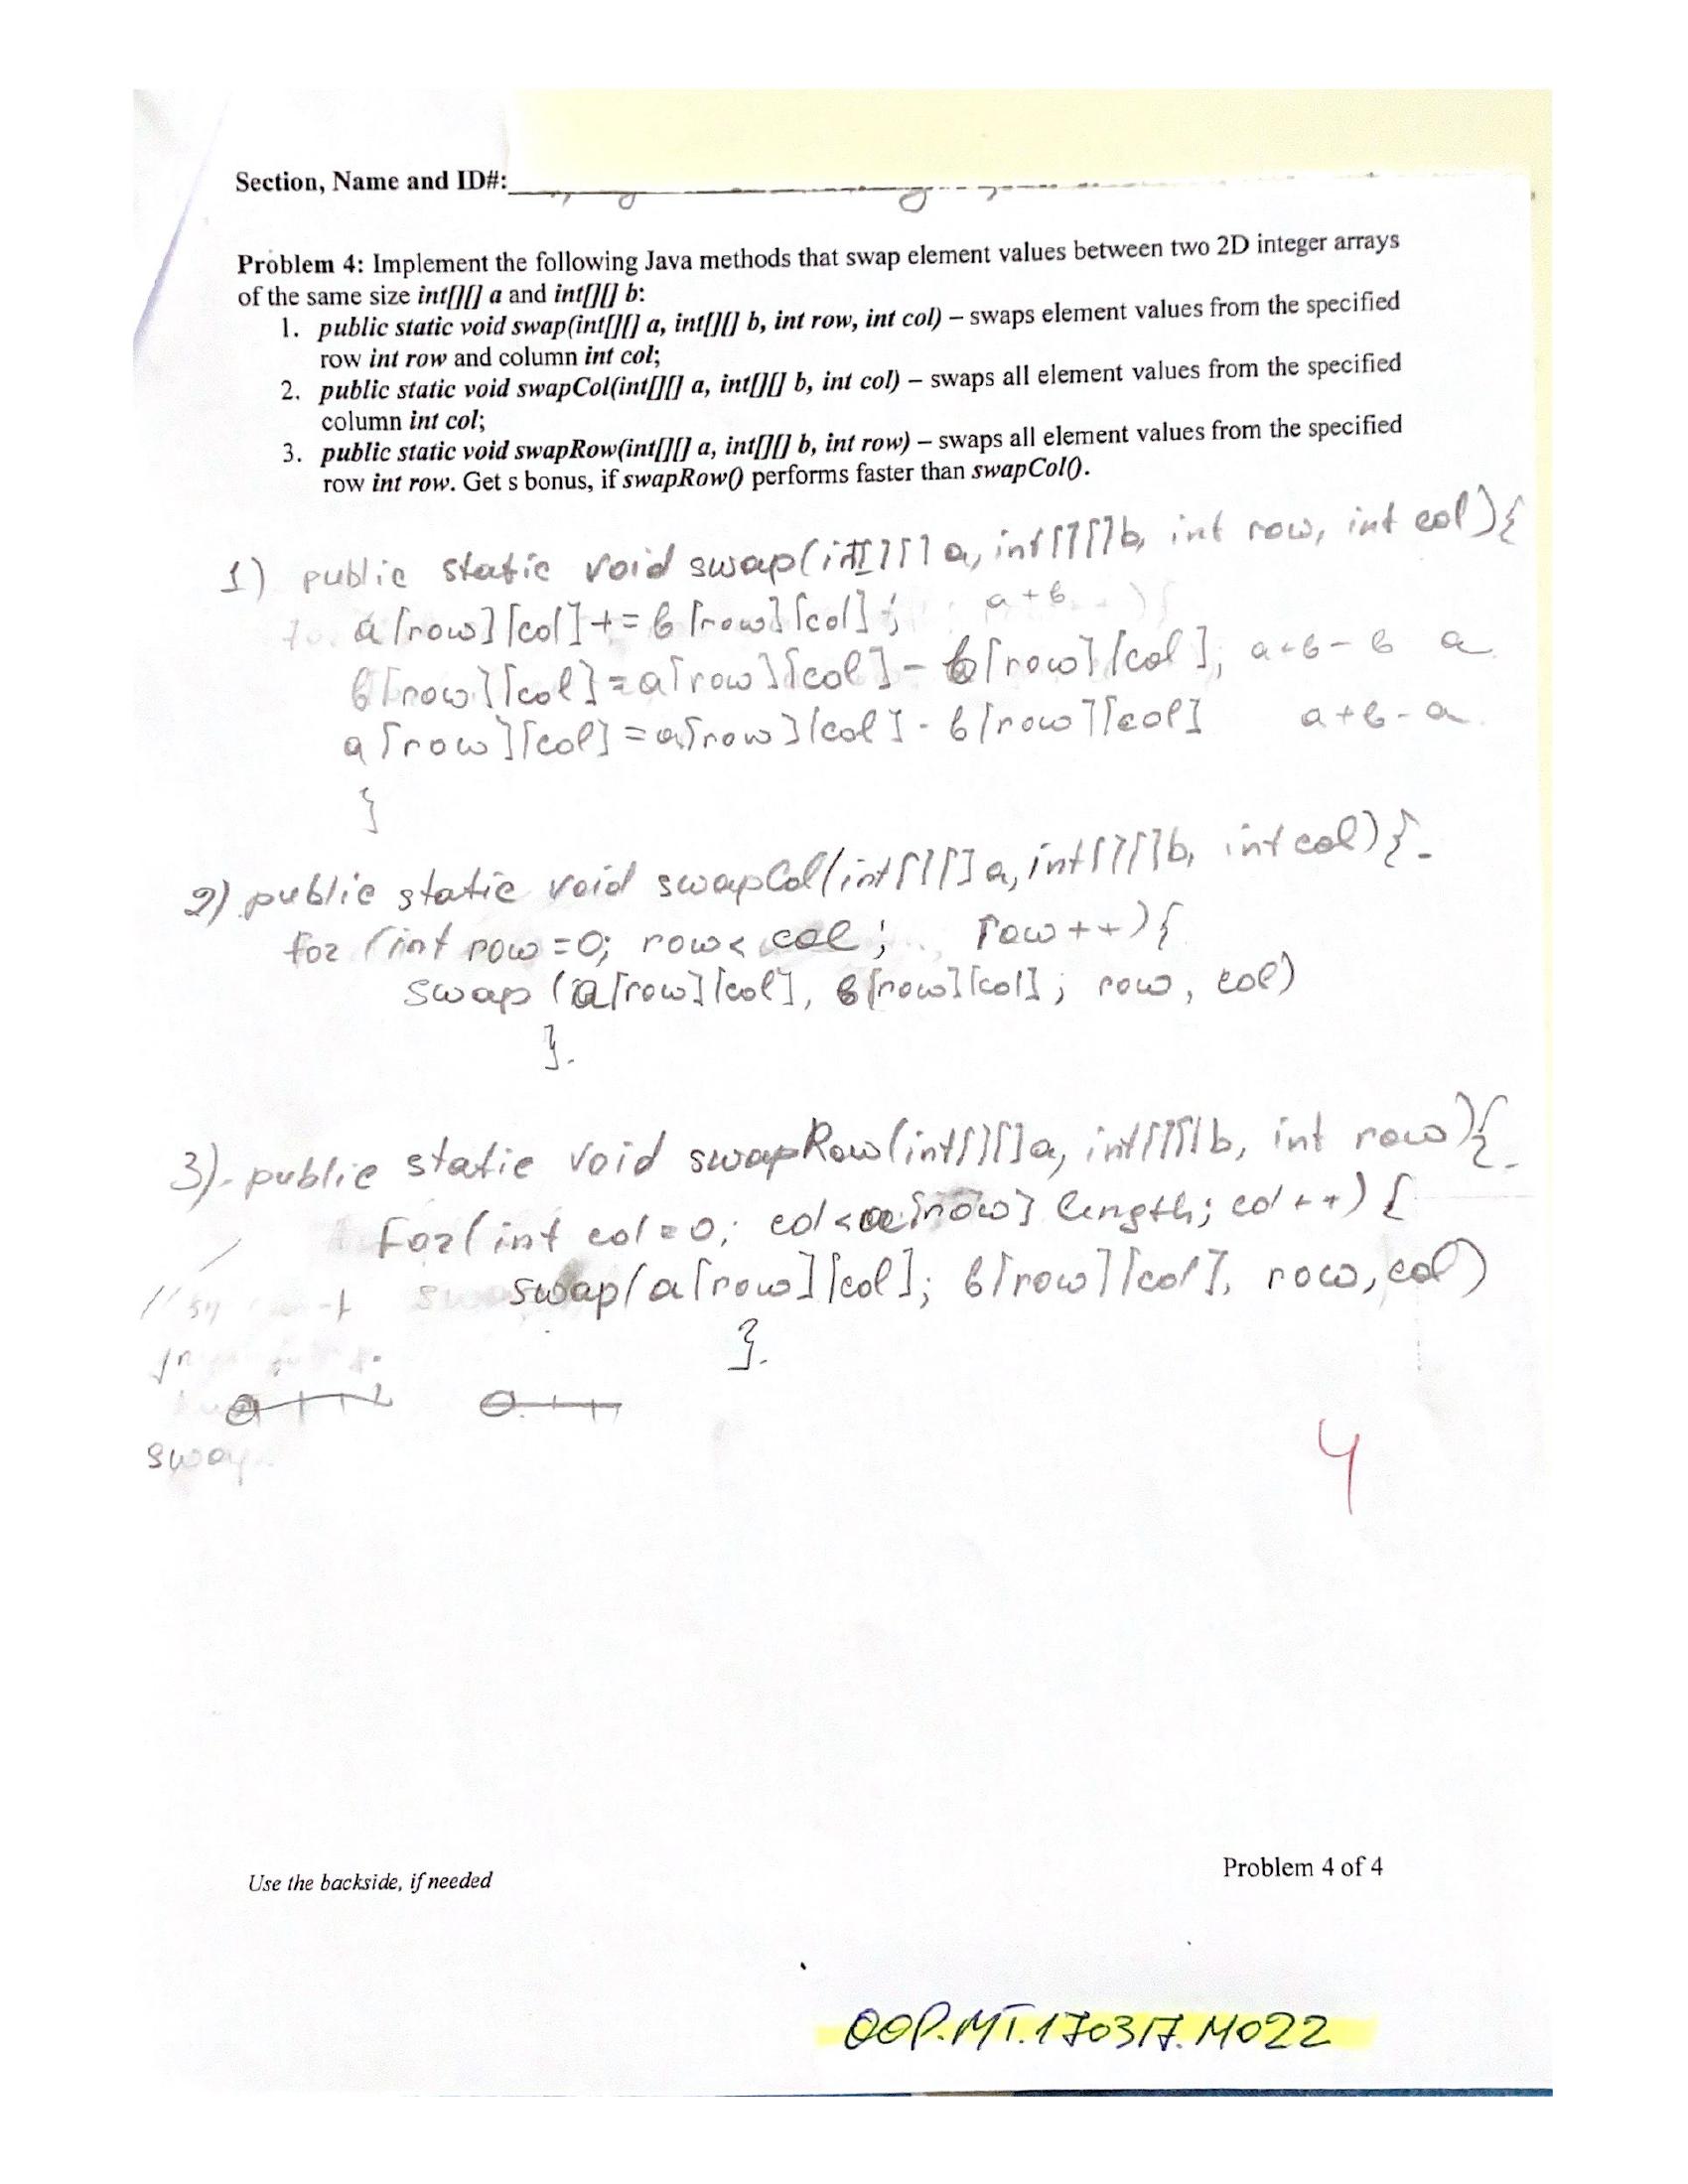 Section, Name and ID#:
Problem 4: Implement the following Java methods that swap element values between two 2D integer arrays
of the same size int[][] a and int[][] b:
1. public static void swap(int[][] a, int[][] b, int row, int col) – swaps element values from the specified
row int row and column int col;
2. public static void swapCol(int[][] a, int[][] b, int col) – swaps all element values from the specified
column int col;
3. public static void swapRow(int[][] a, int[][] b, int row) – swaps all element values from the specified
row int row. Get s bonus, if swapRow() performs faster than swapCol().
1) public static void swap(int[][] a, int[][]b, int row, int col){
a[row][col]+= b[row][col]; a+b
b[row][col]=a[row][col]- b[row][col]; a+b-b a
a[row][col]=a[row][col]-b[row][col] a+b-a
}
2) public static void swapCol(int[][] a, int[][]b, int col){
for (int row=0; row< col; row++){
swap (a[row][col], b[row][col]; row, col)
}
3) public static void swapRow(int[][]a, int[][]b, int row){
for(int col=0; col<a[row] length; col++){
swap(a[row][col]; b[row][col], row, col)
}
swap
4
Use the backside, if needed
Problem 4 of 4
OOP.MT.170317.M022